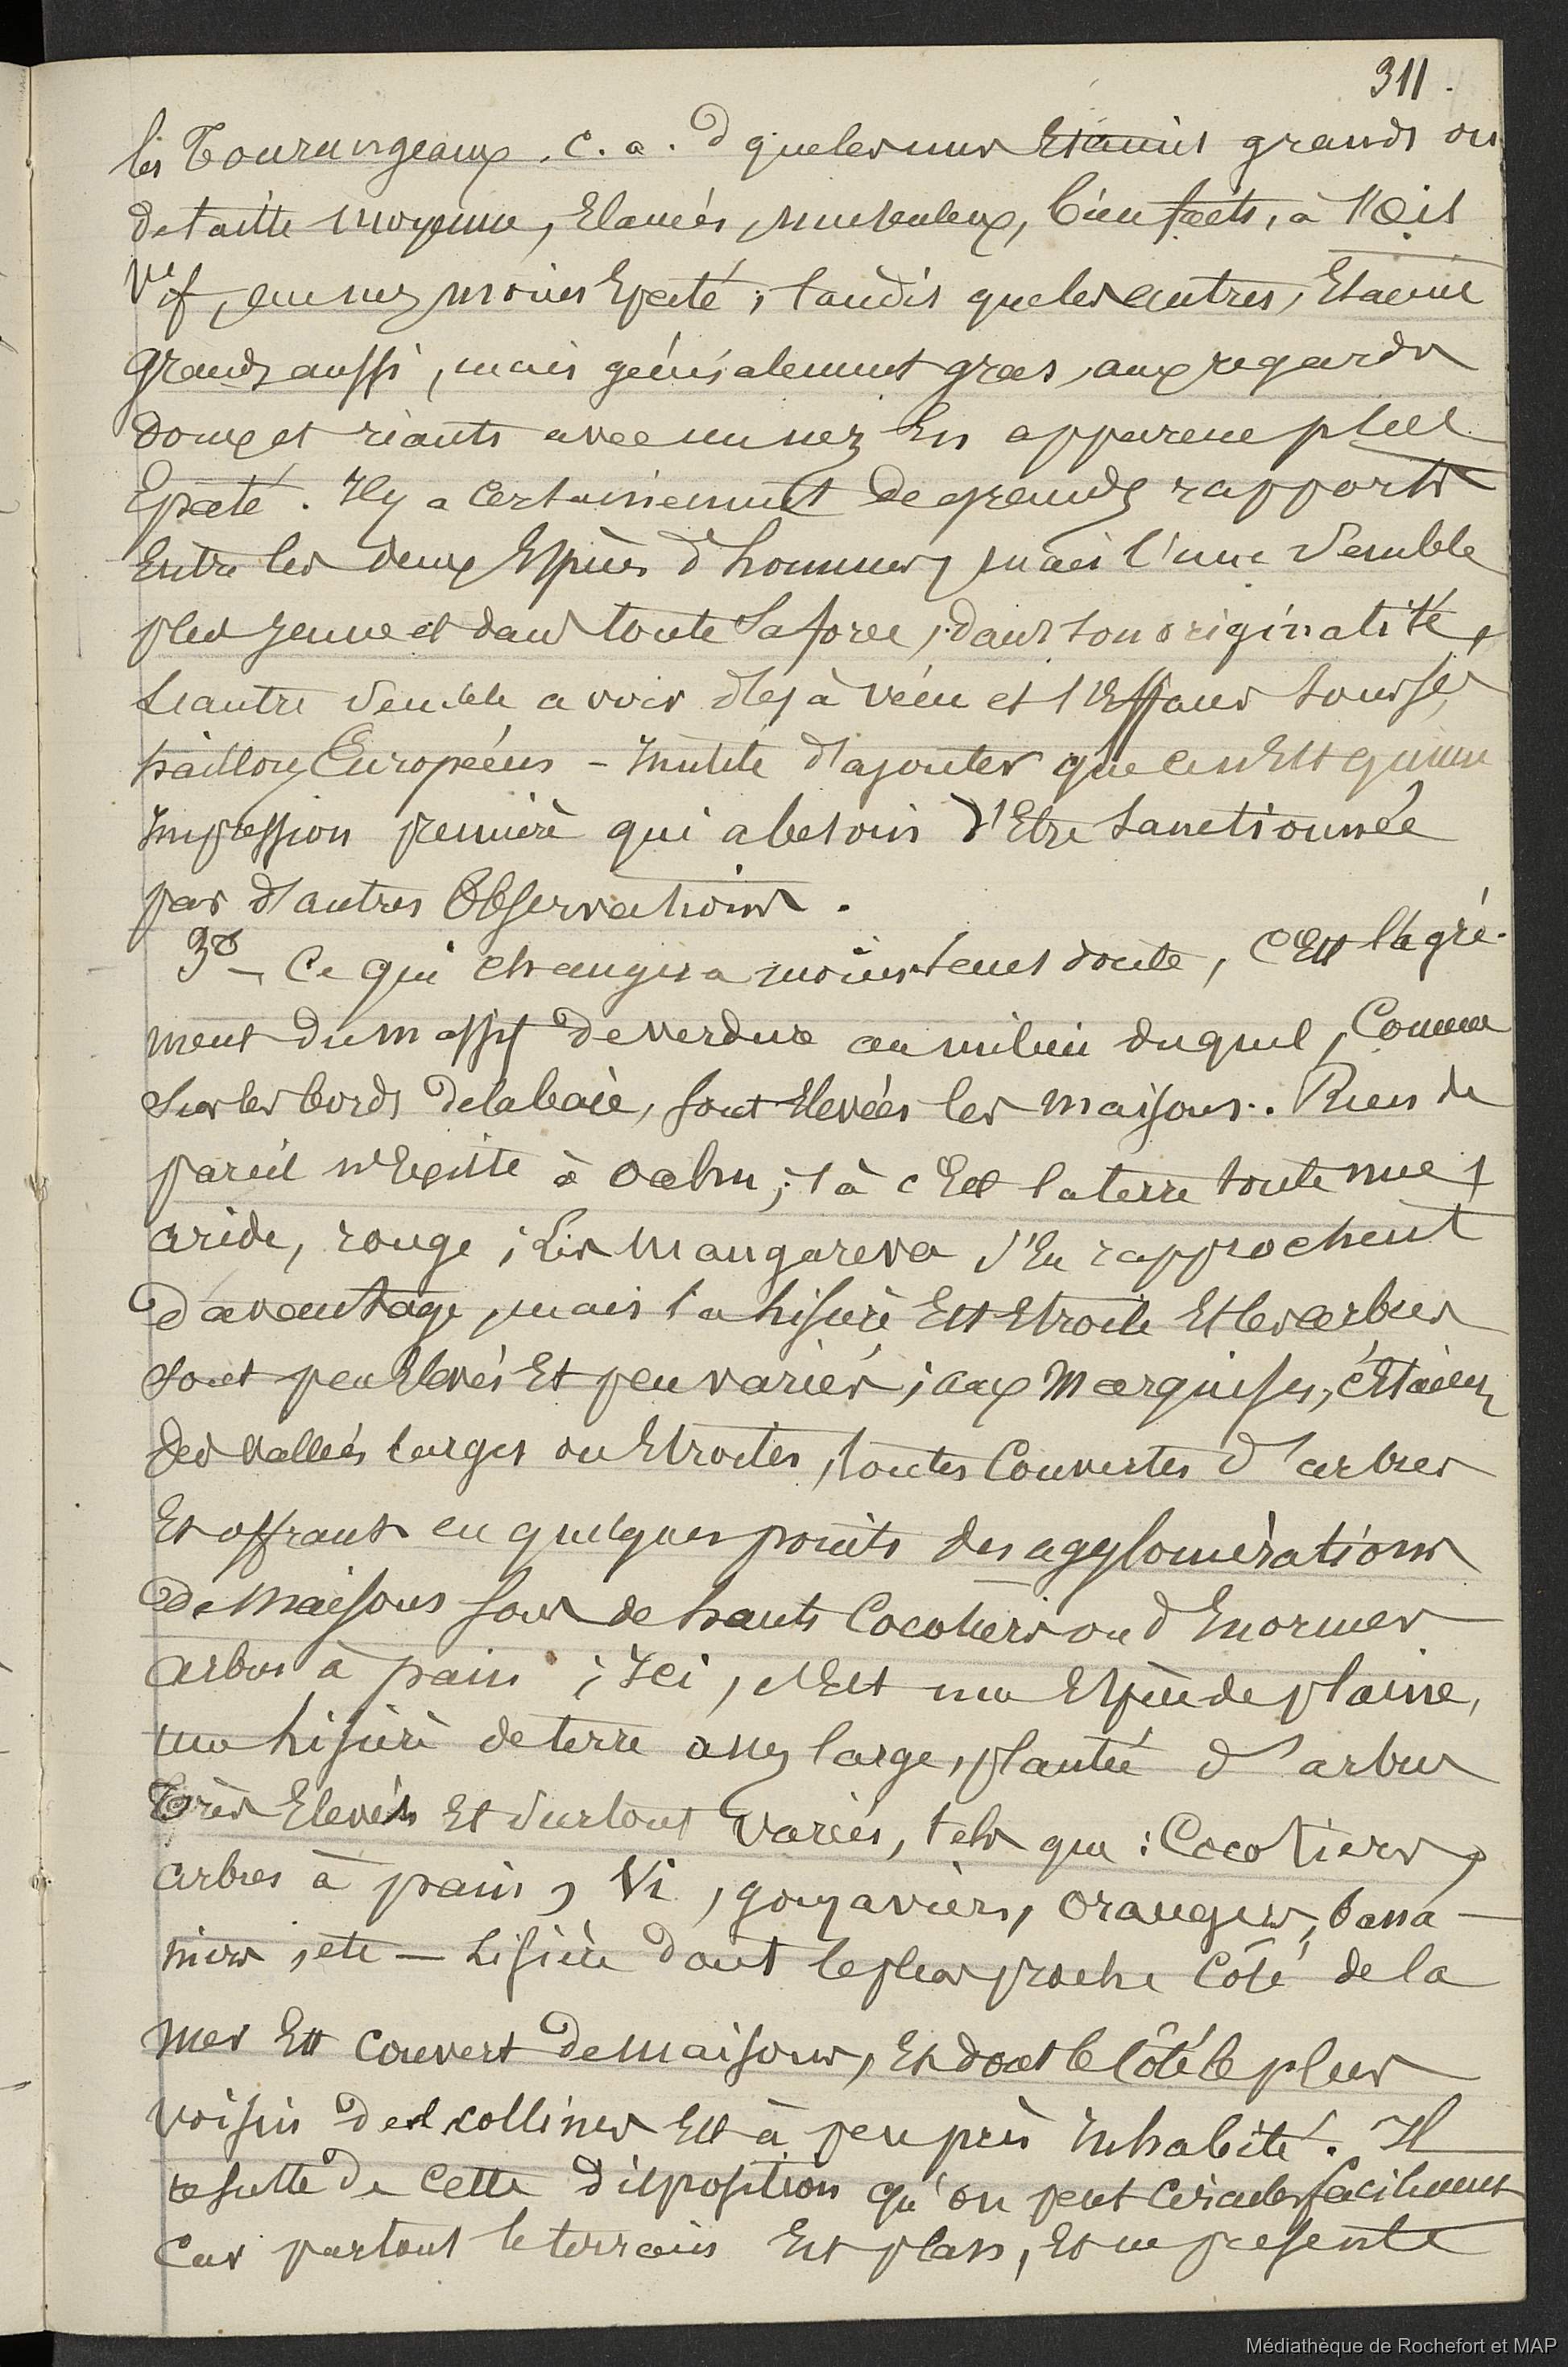 311.
les Tourangeaux, c. a. d que les uns Etaient grands ou
de taille moyenne, Elancés, musculeux, bien faits, à l'œil
vif, au nez moins Epaté; tandis que les autres, Etaient
grands aussi, mais généralement gras, aux regards
doux et riants avec un nez En apparence plus
Epaté. Il y a certainement de grands rapports
Entre les deux Espèces d'hommes, mais l'une semble
plus jeune et dans toute sa force, dans son originalité,
L'autre semble avoir déjà vécu et s'Effacer sous ses
haillons Européens - Inutile d'ajouter que ce n'Est qu'une
Impression première qui a besoin d'Etre sanctionnée
par d'autres Observations.
3º - Ce qui changera moins sans doute, c'Est l'agré-
ment du massif de verdure au milieu duquel, Comme
sur les bords de la baie, sont Elevées les maisons. Rien de
pareil n'Existe à Oahu; là c'Est la terre toute nue,
aride, rouge; Les Mangareva s'En rapprochent
davantage, mais la lisière Est Etroite Et les arbres
sont peu Elevés Et peu variés; aux Marquises, c'Etaient
des vallées larges ou Etroites, toutes Couvertes d'arbres
Et offrant en quelques points des agglomérations
de maisons sous de hauts Cocotiers ou d'Enormes
arbres à pain; Ici, c'Est une Espèce de plaine,
une lisière de terre assez large, plantée d'arbres
très Elevés Et surtout variés, tels que: Cocotiers,
arbres à pain, Vi, goyaviers, Orangers, bana-
niers, etc — Lisière dont le plus proche Côté de la
mer Est couvert de maisons, Et dont le côté le plus
voisin des collines Est à peu près inhabité. Il
résulte de cette disposition qu'on peut Circuler facilement
Car partout le terrain Est plan, Et ne présente
Médiathèque de Rochefort et MAP